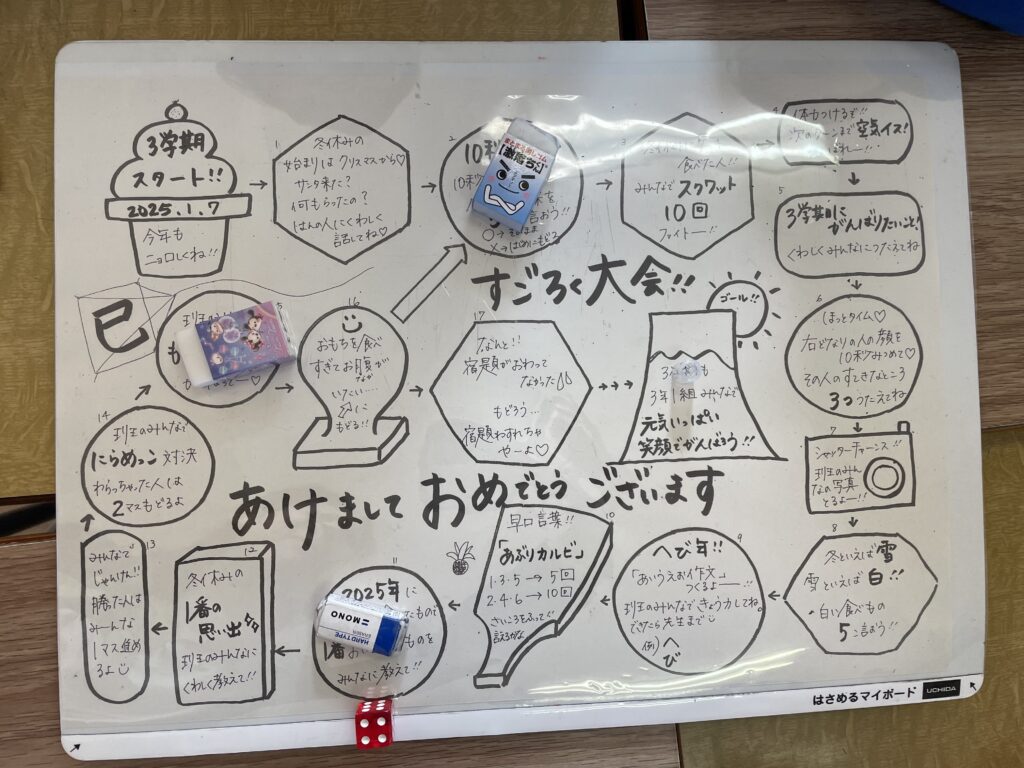 3学期
スタート!!
2025.1.7
今年も
ニョロしくね!!
1
冬休みの
始まりは クリスマスから♡
サンタ来た?
何もらったの?
はんの人にくわしく
話してね♡
2
10秒
10秒
を
言おう!!
○→そのまま
×→はじめにもどる
まとまる消しゴム
激落ちくん
3
食べた人!!
みんなで スクワット
10回
ファイトー!!
4
体力つけるで!!
次のターンまで 空気イス!
5
3学期に
がんばりたいこと!
くわしくみんなにつたえてね
6
ほっとタイム♡
右どなりの人の顔を
10秒みつめて♡
その人のすてきなところ
3コつたえてね
7
シャッターチャーンス!!
班のみん
なの写真
とるよー!!
8
冬といえば 雪
雪といえば 白!!
・白い食べもの
5コ言おう!!
9
へび年!!
「あいうえお作文」
つくるよー!!
班のみんなできょう力してね。
できたら先生まで
例) へ
び
10
早口言葉!!
「あぶりカルビ」
1・3・5→5回
2・4・6→10回
さいころをふって!!
言えるかな
11
2025年に
たもので
1番お ものを
みんなに教えて!!
HARD TYPE
ERASER
MONO
12
冬休みの
1番の
思い出
班のみんなに
くわしく教えて!!
13
みんなで
じゃんけん!!
勝た人は
みーんな
1マス進め
るよ
14
班のみんなで
にらめっこ 対決
わらっちゃった人は
2マスもどるよ
15
班のみん
も
巳
16
おもちを食べ
すぎてお腹が
なか
いたい…
2に
もどる!!
17
なんと!!
宿題がおわって
なかった
もどろう…
宿題わすれちゃ
やーよ♡
ゴール!!
3学期も
3年1組みんなで
元気いっぱい
笑顔でがんばろう!!
すごろく大会!!
あけまして おめでとう ございます
はさめるマイボード UCHIDA